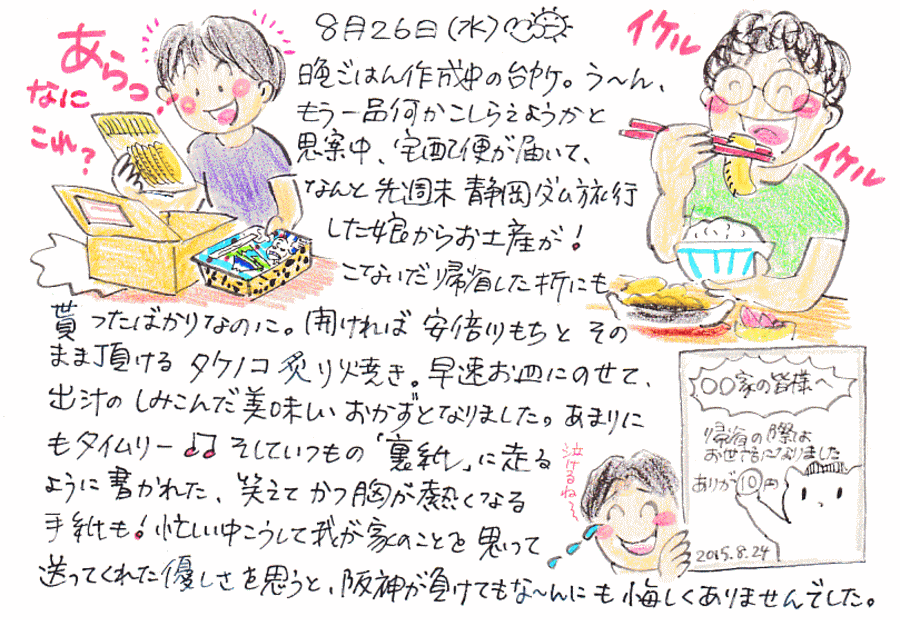 8月26日(水)
あらっ!
なに
これ?
イケル
イケル
晩ごはん作成中の台ヤケ。う〜ん、
もう一品何かこしらえようかと
思案中、宅配便が届いて、
なんと先週末 静岡ダム旅行
した娘からお土産が!
こないだ帰省した折にも
貰ったばかりなのに。開ければ 安倍川もちと その
まま頂ける タケノコ 炙り焼き。早速お皿にのせて、
出汁の しみこんだ 美味しい おかずとなりました。あまりに
もタイムリー♪♫ そしていつもの「裏紙」に走る
ように書かれた、笑えて かつ胸が熱くなる
手紙も! 忙しい中こうして我が家のことを 思って
送ってくれた優しさを思うと、阪神が負けてもな〜んにも悔しくありませんでした。
泣けるね〜
〇〇家の皆様へ
帰省の際は
お世話になりました
ありが⑩円
2015.8.24